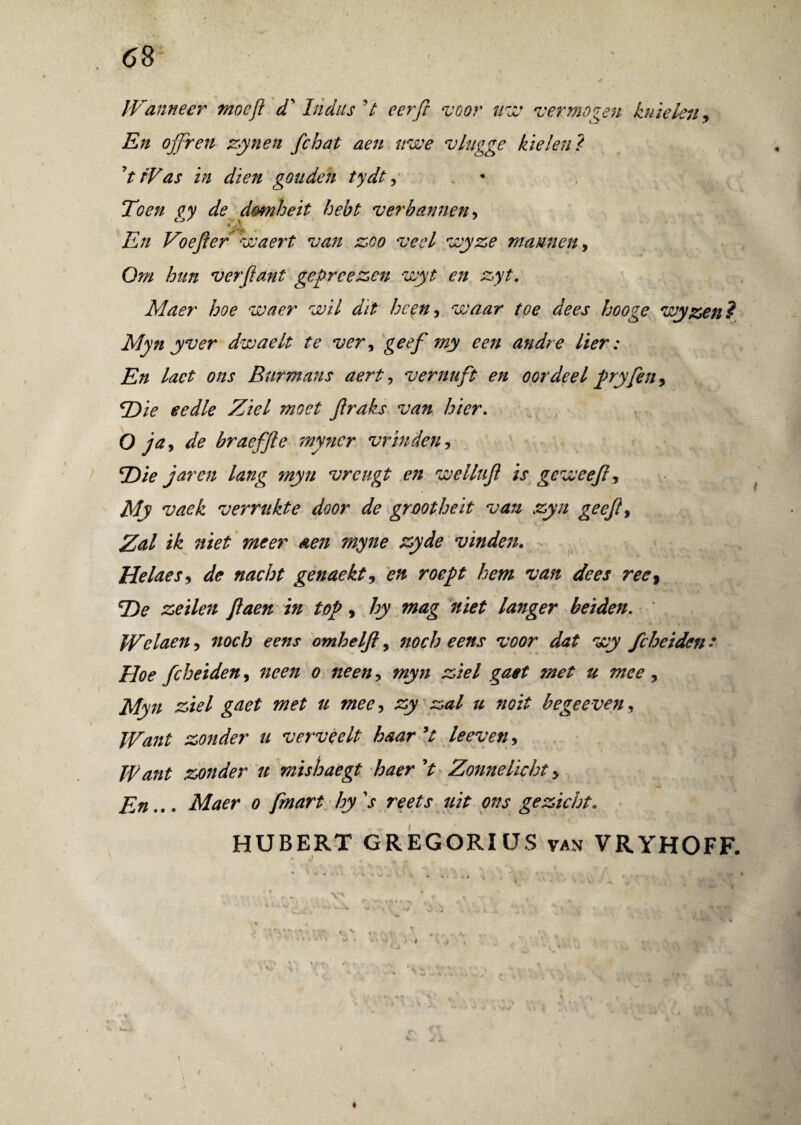 68
Wanneer moeſt d' Indus 't eerſt voor uw vermogen knielen,
En offren zynen ſchat aen uwe vlugge kielen?
't Was in dien gouden tydt,
Toen gy de domheit hebt verbannen,
En Voeſter waert van zoo veel wyze mannen,
Om hun verſtant gepreezen wyt en zyt.
Maer hoe waer wil dit heen, waar toe dees hooge wyzen?
Myn yver dwaelt te ver, geef my een andre lier:
En laet ons Burmans aert, vernuft en oordeel pryſen,
Die eedle Ziel moet ſtraks van hier.
O ja, de braefſte myner vrinden,
Die jaren lang myn vreugt en welluſt is geweeſt,
My vaek verrukte door de grootheit van zyn geeſt,
Zal ik niet meer aen myne zyde vinden.
Helaes, de nacht genaekt, en roept hem van dees ree,
De zeilen ſtaen in top, hy mag niet langer beiden.
Welaen, noch eens omhelſt, noch eens voor dat wy ſcheiden:
Hoe ſcheiden, neen o neen, myn ziel gaet met u mee,
Myn ziel gaet met u mee, zy zal u noit begeeven,
Want zonder u verveelt haar 't leeven,
Want zonder u mishaegt haer 't Zonnelicht,
En... Maer o ſmart hy 's reets uit ons gezicht.
HUBERT GREGORIUS VAN VRYHOFF.